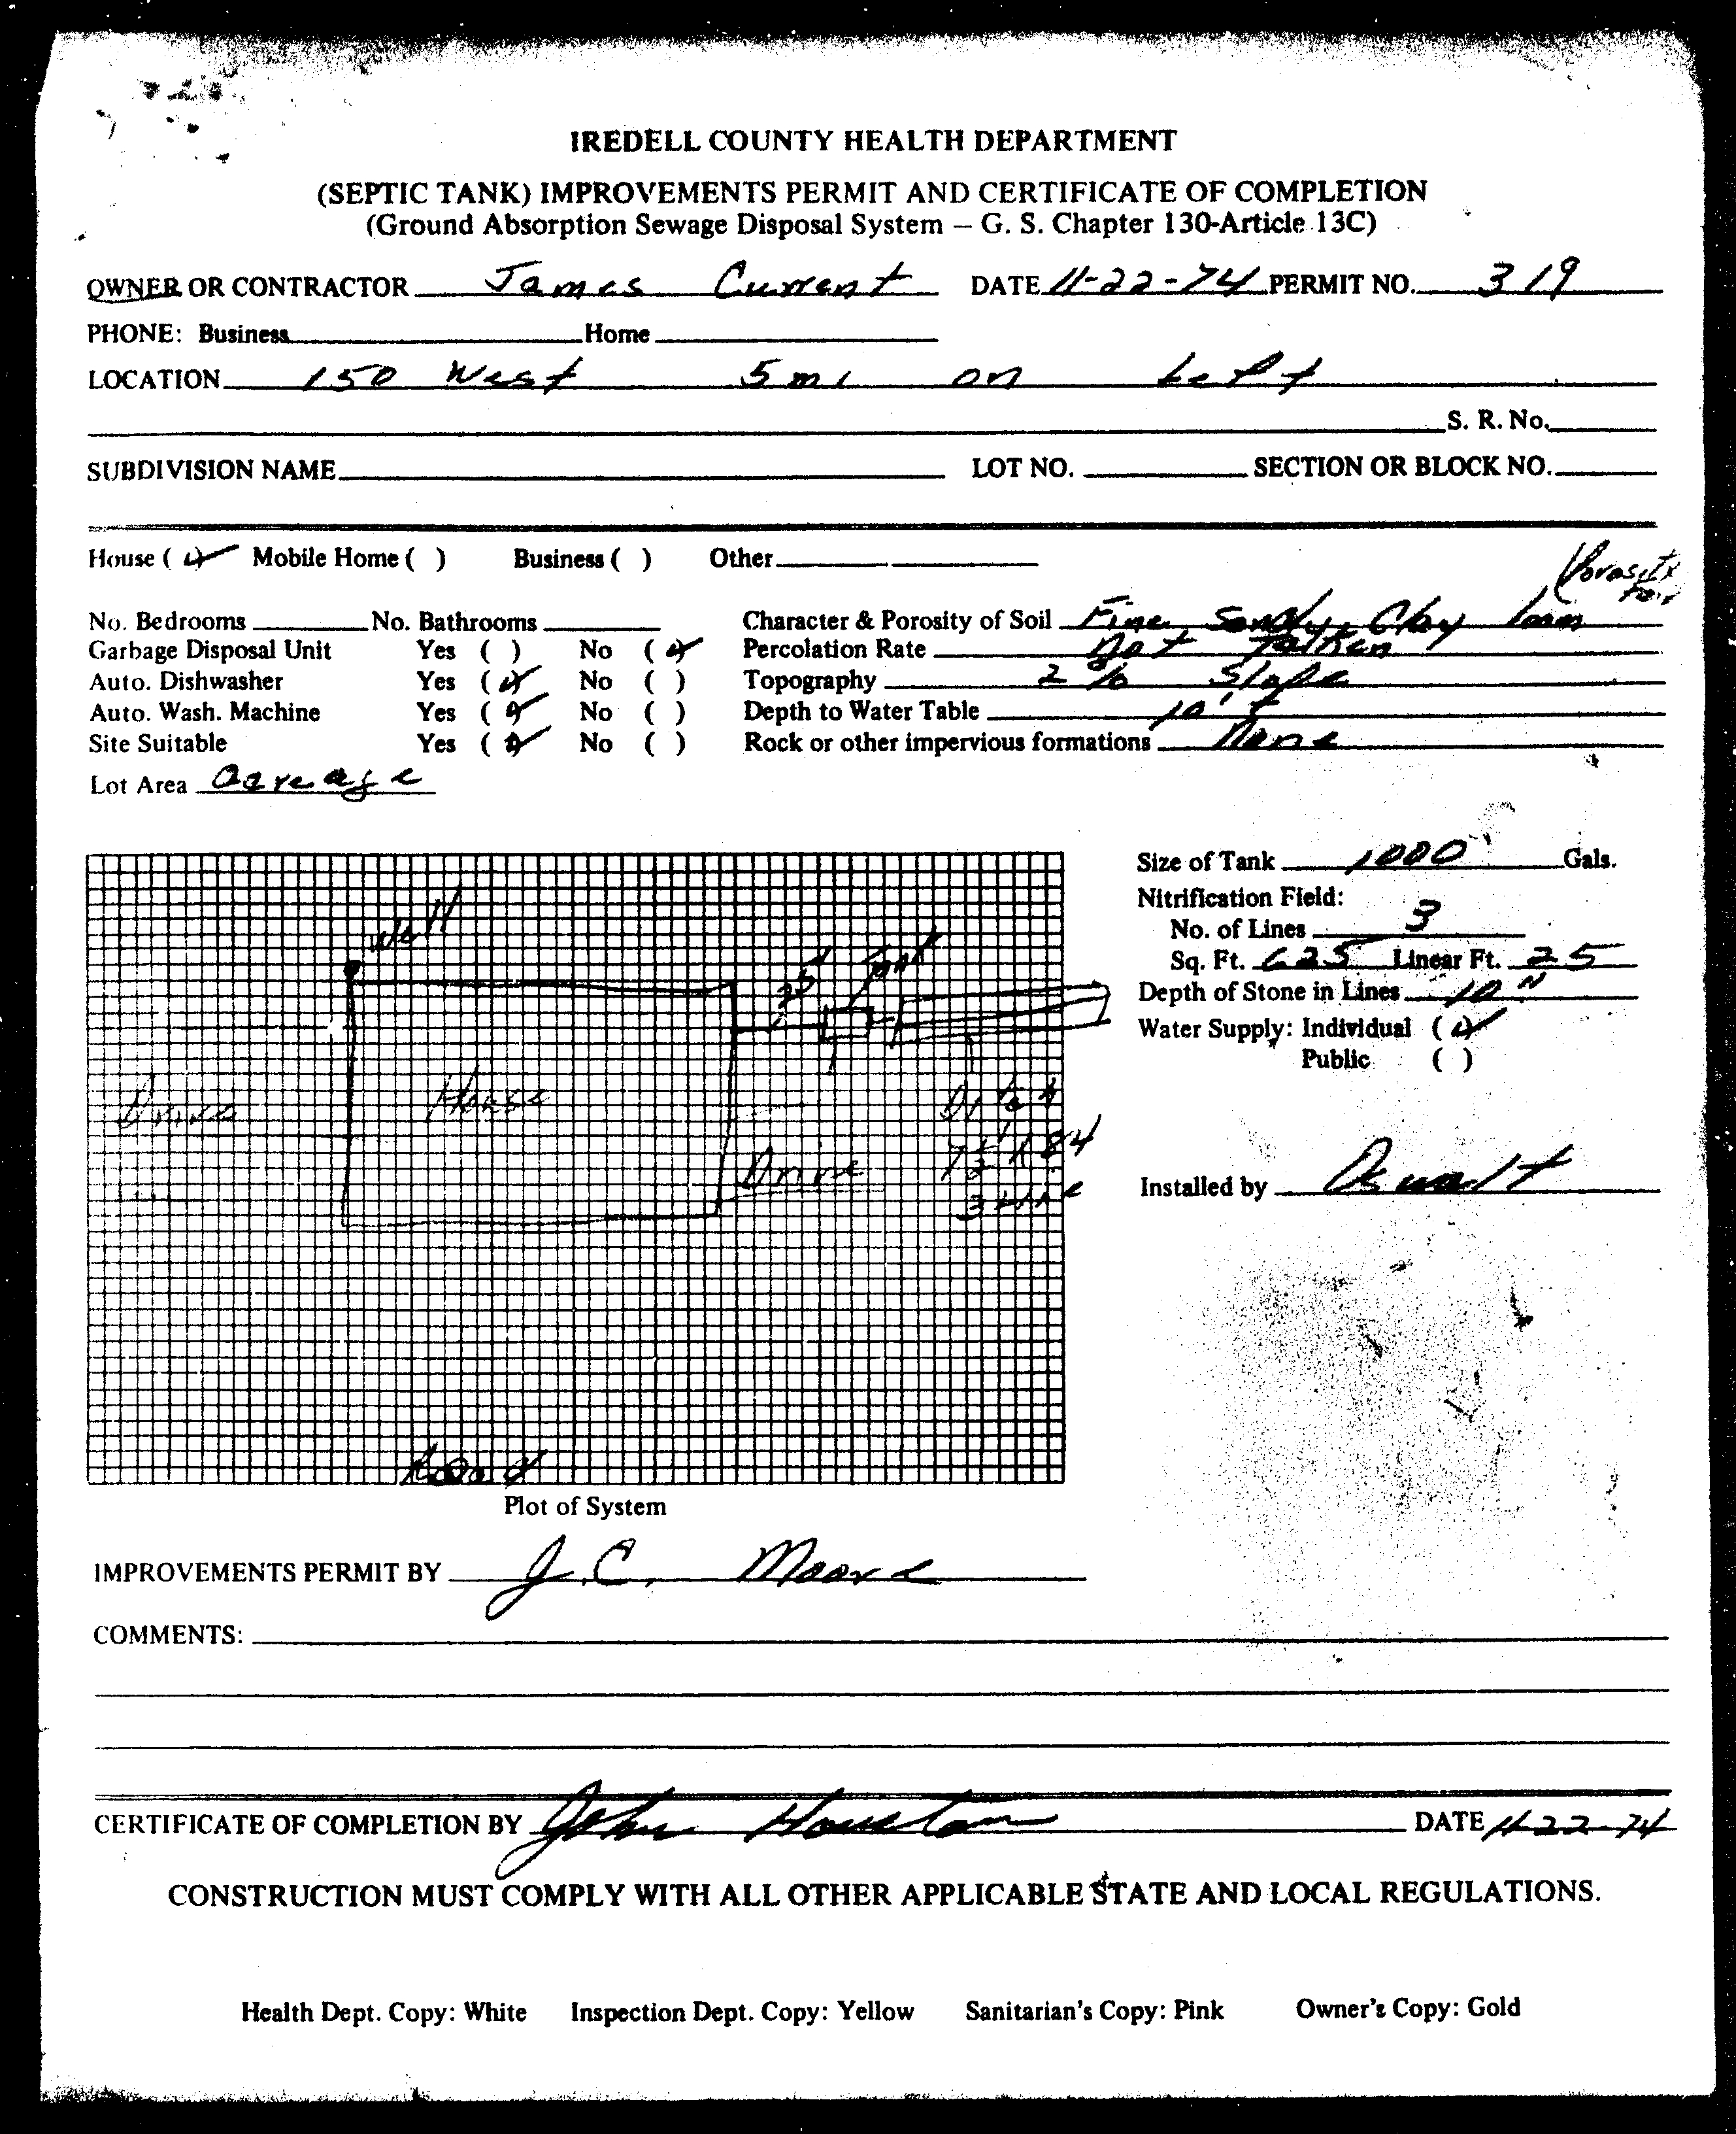 IREDELL COUNTY HEALTH DEPARTMENT
(SEPTIC TANK) IMPROVEMENTS PERMIT AND CERTIFICATE OF COMPLETION
(Ground Absorption Sewage Disposal System – G. S. Chapter 130-Article 13C)
OWNER OR CONTRACTOR James Current DATE 11-22-74 PERMIT NO. 319
PHONE: Business Home
LOCATION 150 West 5 mi on Left
S. R. No.
SUBDIVISION NAME LOT NO. SECTION OR BLOCK NO.
House (✓) Mobile Home ( ) Business ( ) Other
Porosity
Fair
No. Bedrooms No. Bathrooms Character & Porosity of Soil Fine Sandy, Clay loam
Garbage Disposal Unit Yes ( ) No (✓) Percolation Rate Not Taken
Auto. Dishwasher Yes (✓) No ( ) Topography 2 % Slope
Auto. Wash. Machine Yes (✓) No ( ) Depth to Water Table 10' +
Site Suitable Yes (✓) No ( ) Rock or other impervious formations None
Lot Area Acreage
Size of Tank 1000 Gals.
Nitrification Field:
No. of Lines 3
Sq. Ft. 625 Linear Ft. 25
Depth of Stone in Lines 10"
Water Supply: Individual (✓)
Public ( )
Well
25'
Tank
Drive
House
Ditch
7½' x 84
3 Line
Drive
Installed by
Road
Plot of System
IMPROVEMENTS PERMIT BY J. C. Moore
COMMENTS:
CERTIFICATE OF COMPLETION BY John Houston DATE 11-22-74
CONSTRUCTION MUST COMPLY WITH ALL OTHER APPLICABLE STATE AND LOCAL REGULATIONS.
Health Dept. Copy: White Inspection Dept. Copy: Yellow Sanitarian's Copy: Pink Owner's Copy: Gold